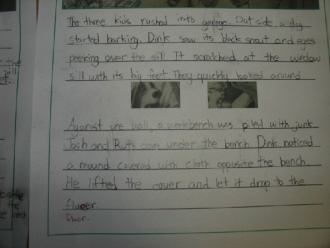 The three kids rushed into garage. Out side a dog
started barking. Dink saw its black snout and eyes
peeking over the sill It scratched at the window
sill with its big feet They quickly looked around
Against one wall, a workbench was piled with junk
Josh and Ruth  under the bench Dink noticed
a mound covered with cloth opposite the bench.
He lifted the cover and let it drop to the
floor.